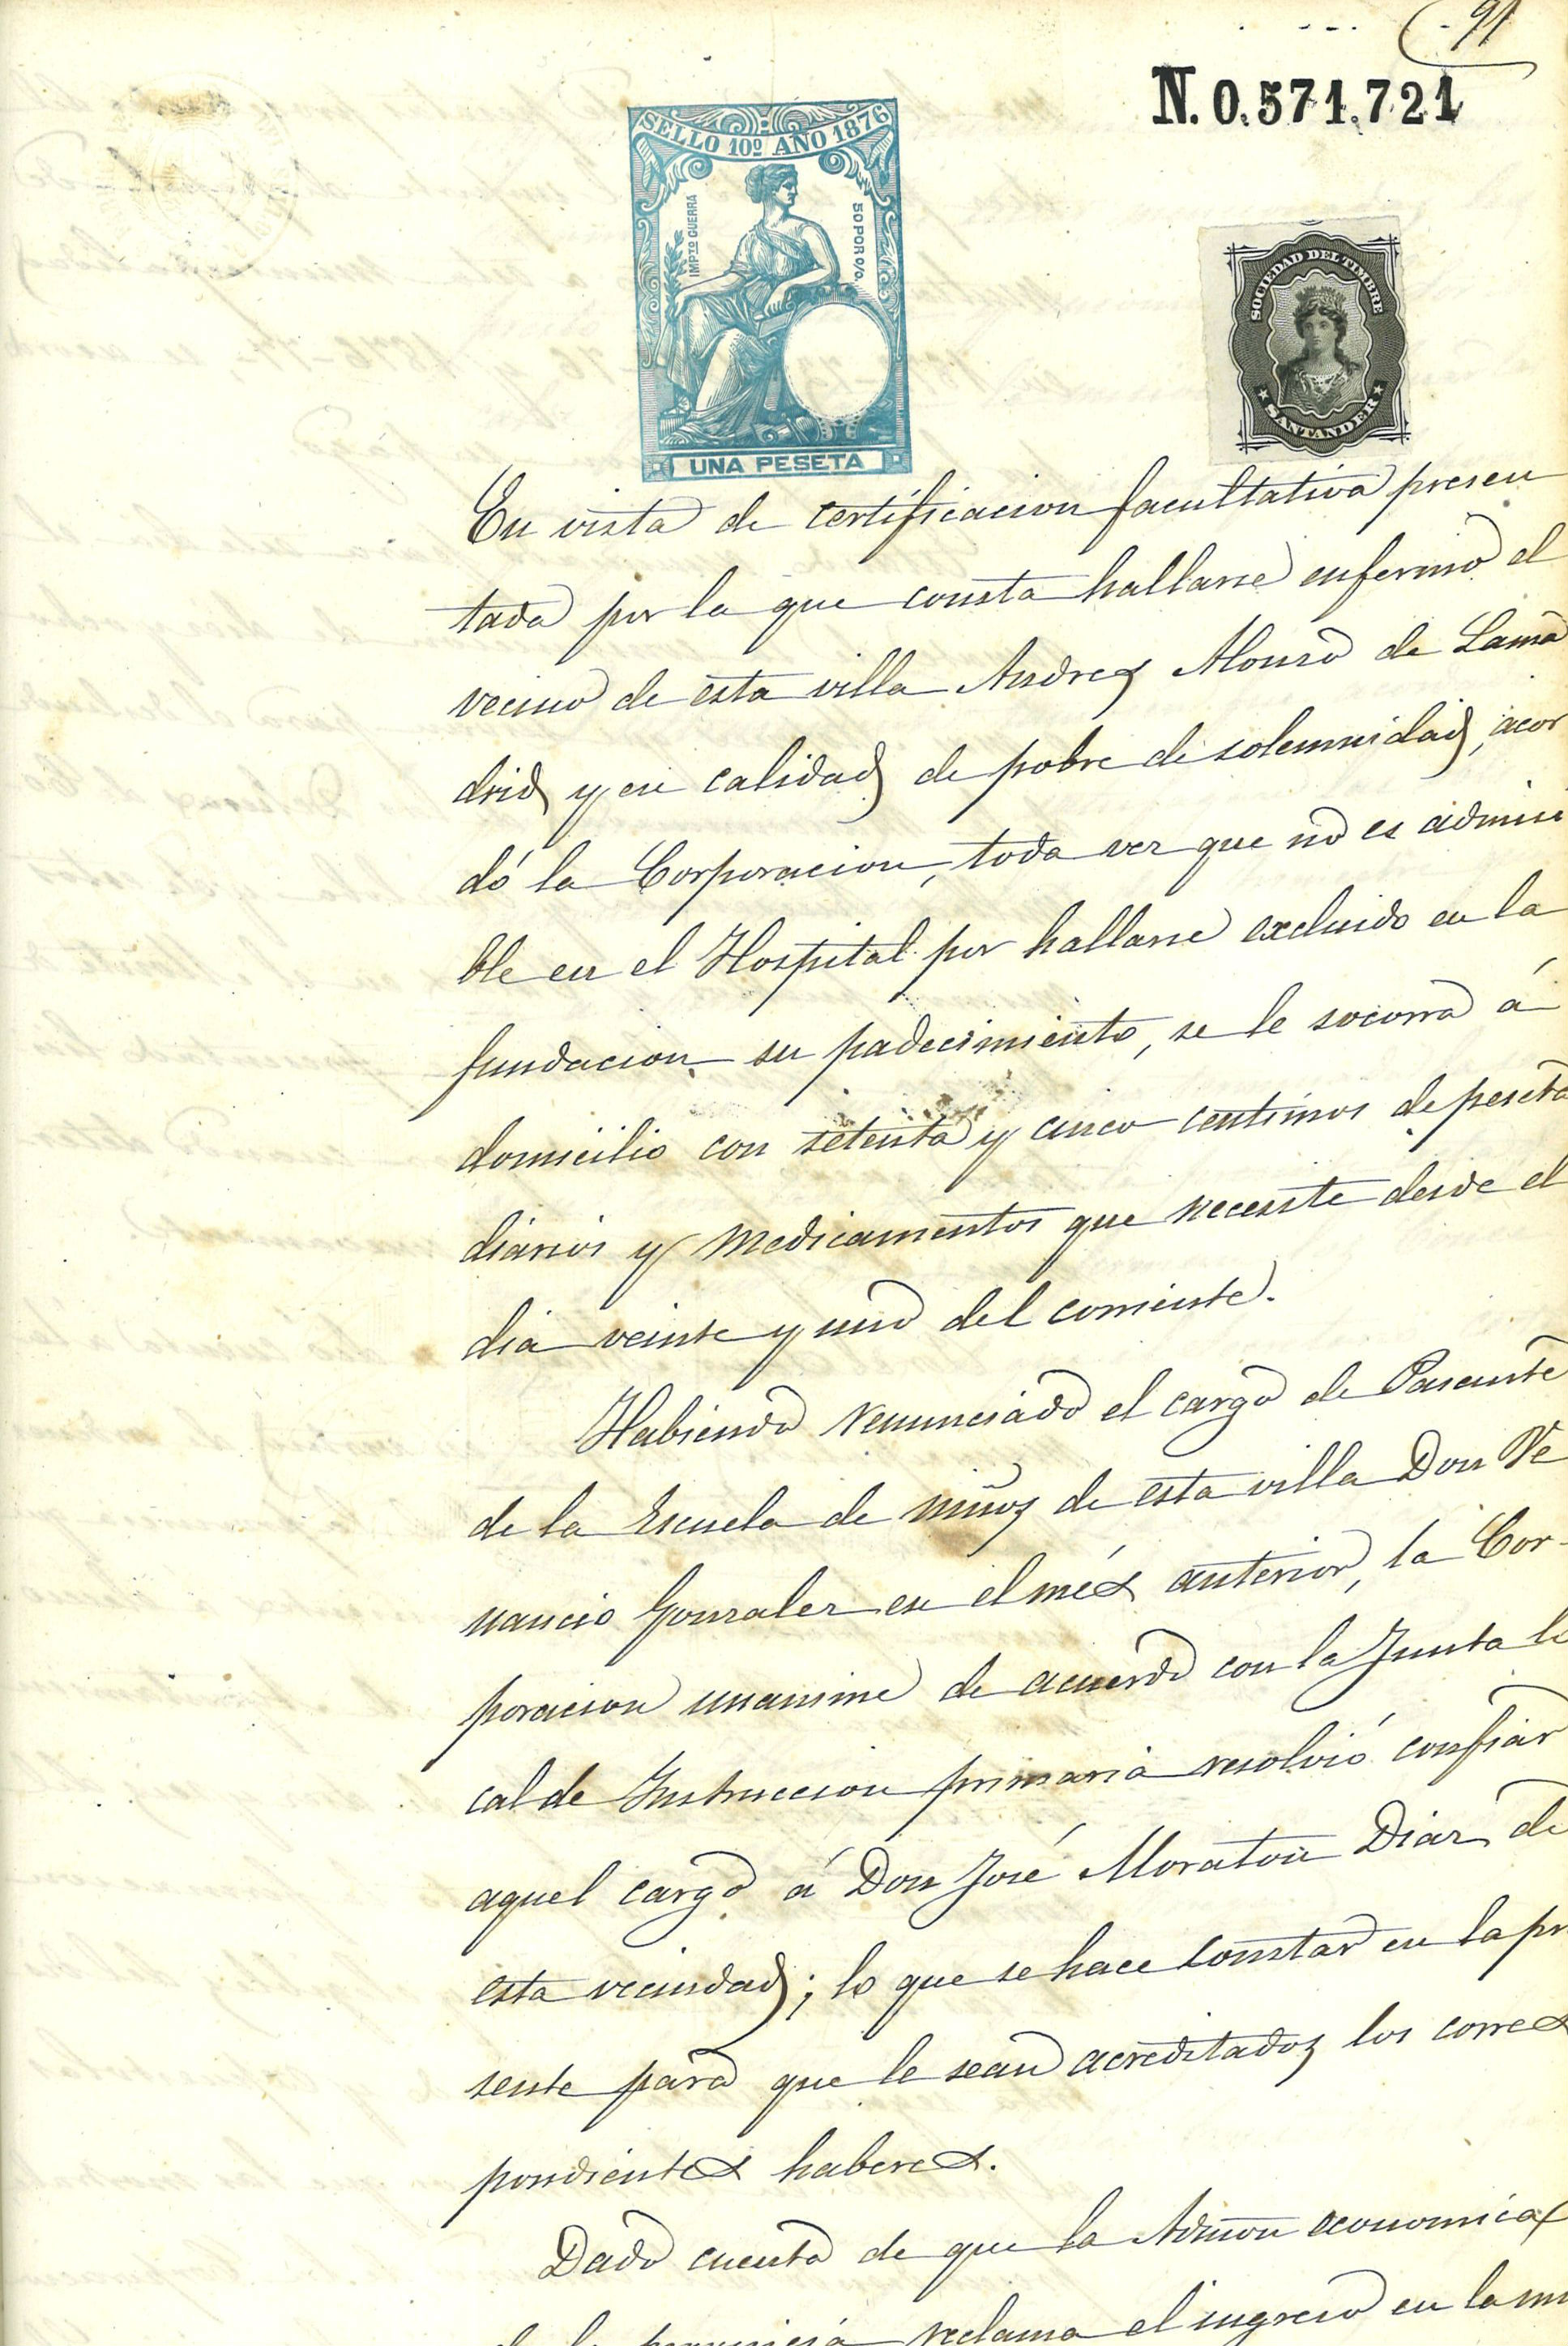 91
N. 0.571.721
SELLO 10º AÑO 1876
IMPTO GUERRA
50 POR 0/0.
UNA PESETA
SOCIEDAD DEL TIMBRE
SANTANDER
En vista de certificacion facultativa presen
tada por la que consta hallarse enfermo el
vecino de esta villa Andres Alonso de Lama
drid y en calidad de pobre de solemnidad, acor
dó la Corporacion, toda vez que no es admisi
ble en el Hospital por hallarse excluido en la
fundacion su padecimiento, se le socorra á
domicilio con setenta y cinco centimos de peseta
diarios y medicamentos que necesite desde el
dia veinte y uno del corriente.
Habiendo renunciado el cargo de Pasante
de la Escuela de niños de esta villa Don Ve
nancio Gonzalez en el més anterior, la Cor-
poracion unanime de acuerdo con la Junta lo
cal de Instruccion primaria resolvió confiar
aquel cargo á Don José Moraton Diaz de
esta vecindad; lo que se hace constar en la pr
sente para que le sean acreditados los corres
pondientes haberes.
Dado cuenta de que la Admon economica
provincia reclama el ingreso en la mi